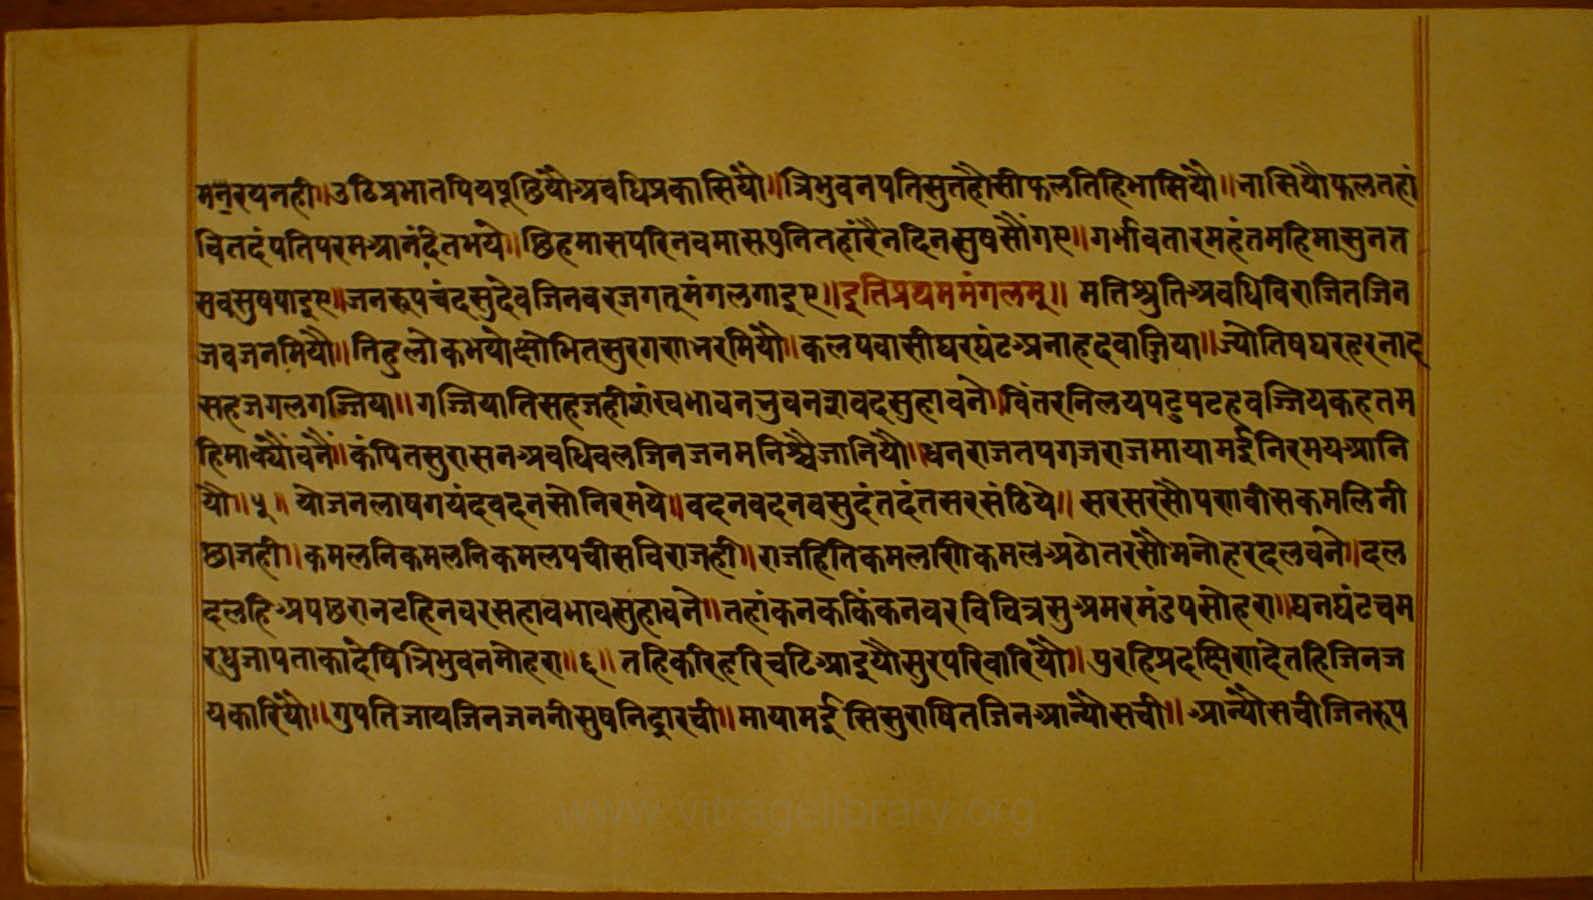 मनरयनही॥उठिप्रभातपियपूछियौअवधिप्रकासियौ॥त्रिभुवनपतिसुतहौसीफलतिहिभासियौ॥नासियौफलतहां
चितदंपतिपरमआनंदितभये॥छिहमासपरिनवमासपुनितहांरैनदिनसुषसौंगए॥गर्भावतारमहंतमहिमासुनत
सवसुषपाइए॥जनरूपचंदसुदेवजिनवरजगतूमंगलगाइए॥इतिप्रथममंगलम्॥ मतिश्रुतिअवधिविराजितजिन
जवजनमियौ॥तिहुलोकभयोक्षोभितसुरगणभरमियौ॥कलपवासीघरघंटअनाहदवाजिया॥ज्योतिषघरहरनाद
सहजगलगज्जिया॥गज्जियातिसहजहीशंखभावनभुवनशवदसुहावने॥विंतरनिलयपटुपटहवज्जियकहतम
हिमाक्यौंवनैं॥कंपितसुरासनअवधिवलजिनजनमनिश्चैजानियौ॥धनराजतपगजराजमायामईनिरमयआनि
यौ॥५॥ योजनलाषगयंदवदनसोनिरमये॥वदनवदनवसुदंतदंतसरसंठिये॥ सरसरसौपणवीसकमलिनी
छाजही॥कमलनिकमलनिकमलपचीसविराजही॥राजहितिकमलणिकमलअठोतरसौमनोहरदलवने॥दल
दलहिअपछरानटहिनवरसहावभावसुहावने॥तहांकनककिंकनवरविचित्रसुअमरमंडपसोहरा॥घनघंटचम
रधुजापताकादेषित्रिभुवनमोहरा॥६॥ तहिकरिहरिचटिआइयौसुरपरिवारियौ॥पुरहिप्रदक्षिणादेतहिजिनज
यकारियौ॥गुपतिजायजिनजननीसुषनिद्रारची॥मायामईसिसुराषितजिनआन्यौसची॥ आन्यौसचीजिनरूप
www.vitragelibrary.org